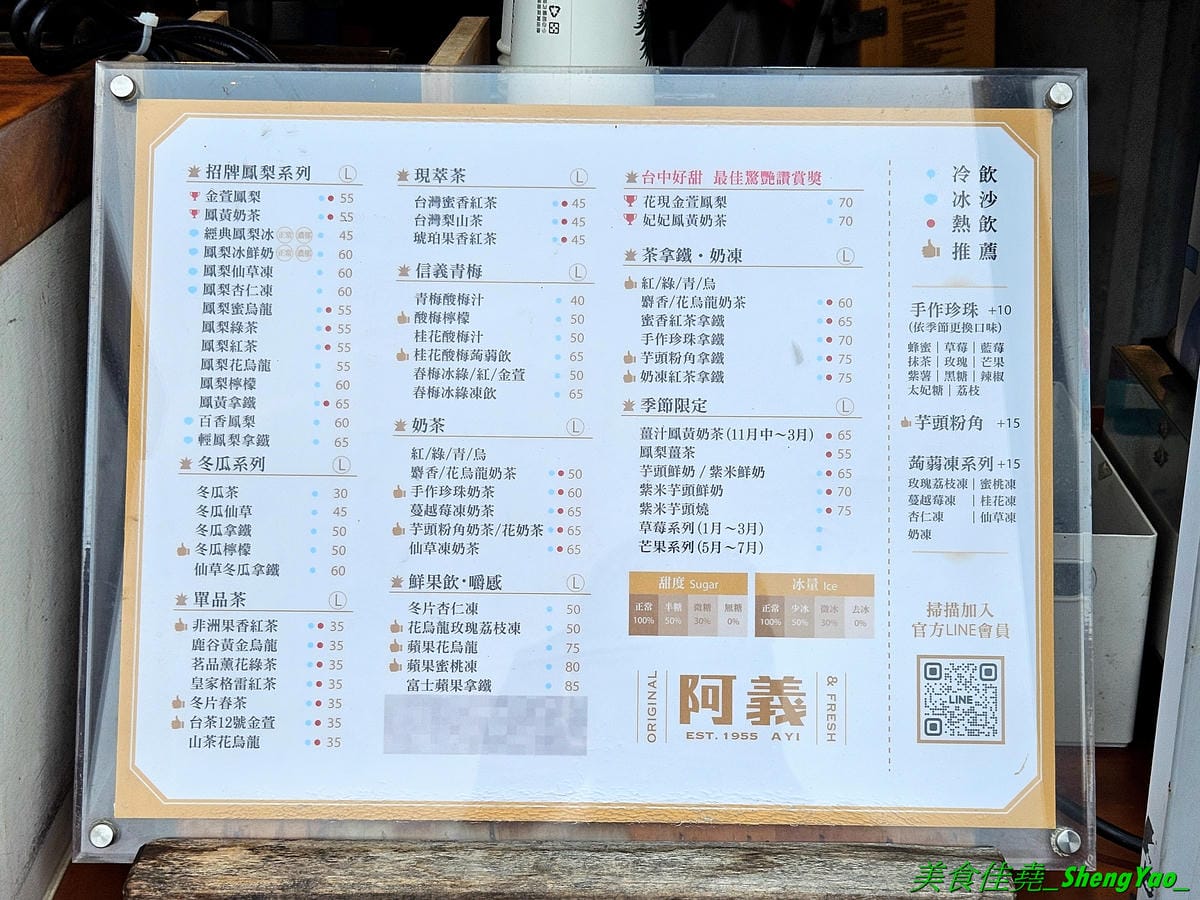 招牌鳳梨系列 L
金萱鳳梨 55
鳳黃奶茶 55
經典鳳梨冰 正常 濃郁 45
鳳梨冰鮮奶 正常 濃郁 60
鳳梨仙草凍 60
鳳梨杏仁凍 60
鳳梨蜜烏龍 55
鳳梨綠茶 55
鳳梨紅茶 55
鳳梨花烏龍 55
鳳梨檸檬 60
鳳黃拿鐵 65
百香鳳梨 60
輕鳳梨拿鐵 65
冬瓜系列 L
冬瓜茶 30
冬瓜仙草 45
冬瓜拿鐵 50
冬瓜檸檬 50
仙草冬瓜拿鐵 60
單品茶 L
非洲果香紅茶 35
鹿谷黃金烏龍 35
茗品薰花綠茶 35
皇家格雷紅茶 35
冬片春茶 35
台茶12號金萱 35
山茶花烏龍 35
現萃茶 L
台灣蜜香紅茶 45
台灣梨山茶 45
琥珀果香紅茶 45
信義青梅 L
青梅酸梅汁 40
酸梅檸檬 50
桂花酸梅汁 50
桂花酸梅蒟蒻飲 65
春梅冰綠/紅/金萱 50
春梅冰綠凍飲 65
奶茶 L
紅/綠/青/烏
麝香/花烏龍奶茶 50
手作珍珠奶茶 60
蔓越莓凍奶茶 65
芋頭粉角奶茶/花奶茶 65
仙草凍奶茶 65
鮮果飲·嚼感 L
冬片杏仁凍 50
花烏龍玫瑰荔枝凍 50
蘋果花烏龍 75
蘋果蜜桃凍 80
富士蘋果拿鐵 85
台中好甜 最佳驚艷讚賞獎
花現金萱鳳梨 70
妃妃鳳黃奶茶 70
茶拿鐵·奶凍 L
紅/綠/青/烏
麝香/花烏龍奶茶 60
蜜香紅茶拿鐵 65
手作珍珠拿鐵 70
芋頭粉角拿鐵 75
奶凍紅茶拿鐵 75
季節限定 L
薑汁鳳黃奶茶(11月中～3月) 65
鳳梨薑茶 55
芋頭鮮奶 / 紫米鮮奶 65
紫米芋頭鮮奶 70
紫米芋頭燒 75
草莓系列(1月～3月)
芒果系列(5月～7月)
甜度 Sugar
正常 半糖 微糖 無糖
100% 50% 30% 0%
冰量 Ice
正常 少冰 微冰 去冰
100% 50% 30% 0%
ORIGINAL
阿義
& FRESH
EST. 1955 AYI
冷飲
冰沙
熱飲
推薦
手作珍珠 +10
(依季節更換口味)
蜂蜜|草莓|藍莓
抹茶|玫瑰|芒果
紫薯|黑糖|辣椒
太妃糖|荔枝
芋頭粉角 +15
蒟蒻凍系列+15
玫瑰荔枝凍|蜜桃凍
蔓越莓凍|桂花凍
杏仁凍|仙草凍
奶凍
掃描加入
官方LINE會員
LINE
美食佳堯_ShengYao_